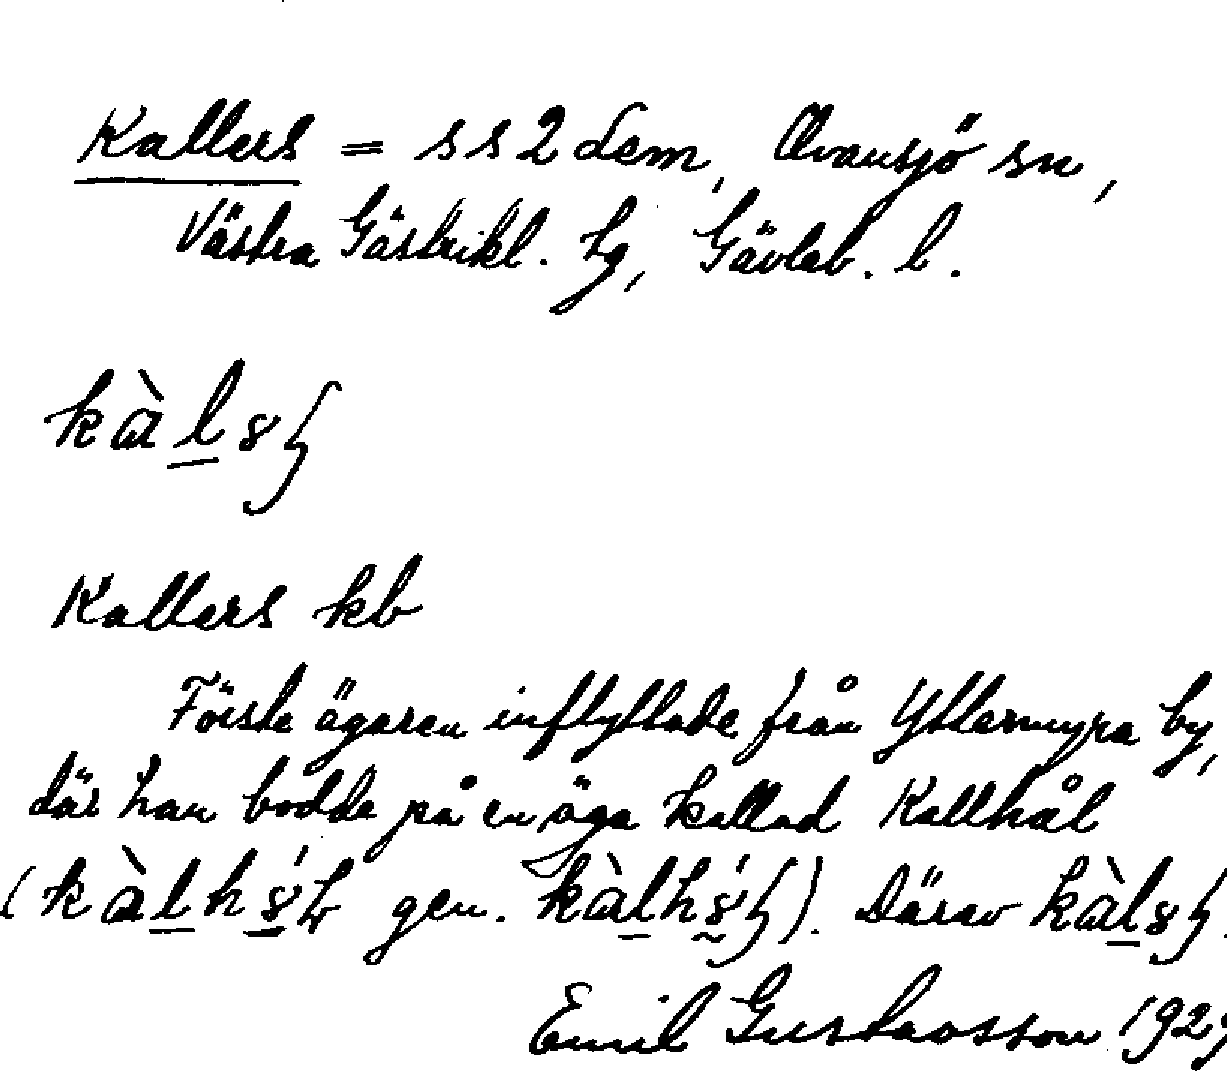 Kallers = s s 2 dem, Ovansjö sn,
Västra Gästrikl. tg, Gävleb. l.
Kallers kb
Förste ägaren inflyttade från Yttermyra by,
där han bodde på en äga kallad Kallhål
gen. Därav
Emil Gustavsson 192